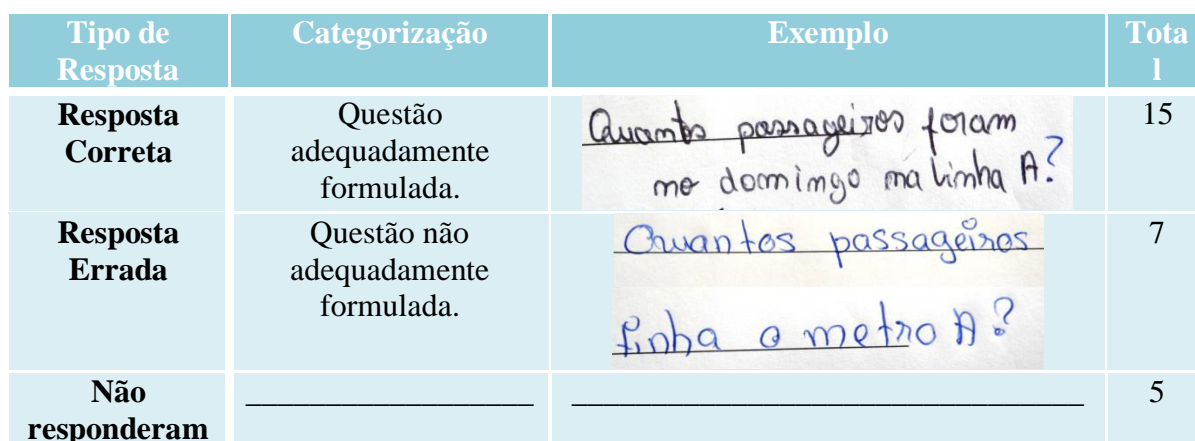 Tipo de Resposta
Categorização
Exemplo
Total
Resposta Correta
Questão adequadamente formulada.
Quantos passageiros foram
no domingo na linha A?
15
Resposta Errada
Questão não adequadamente formulada.
Quantos passageiros
tinha o metro A?
7
Não responderam
5